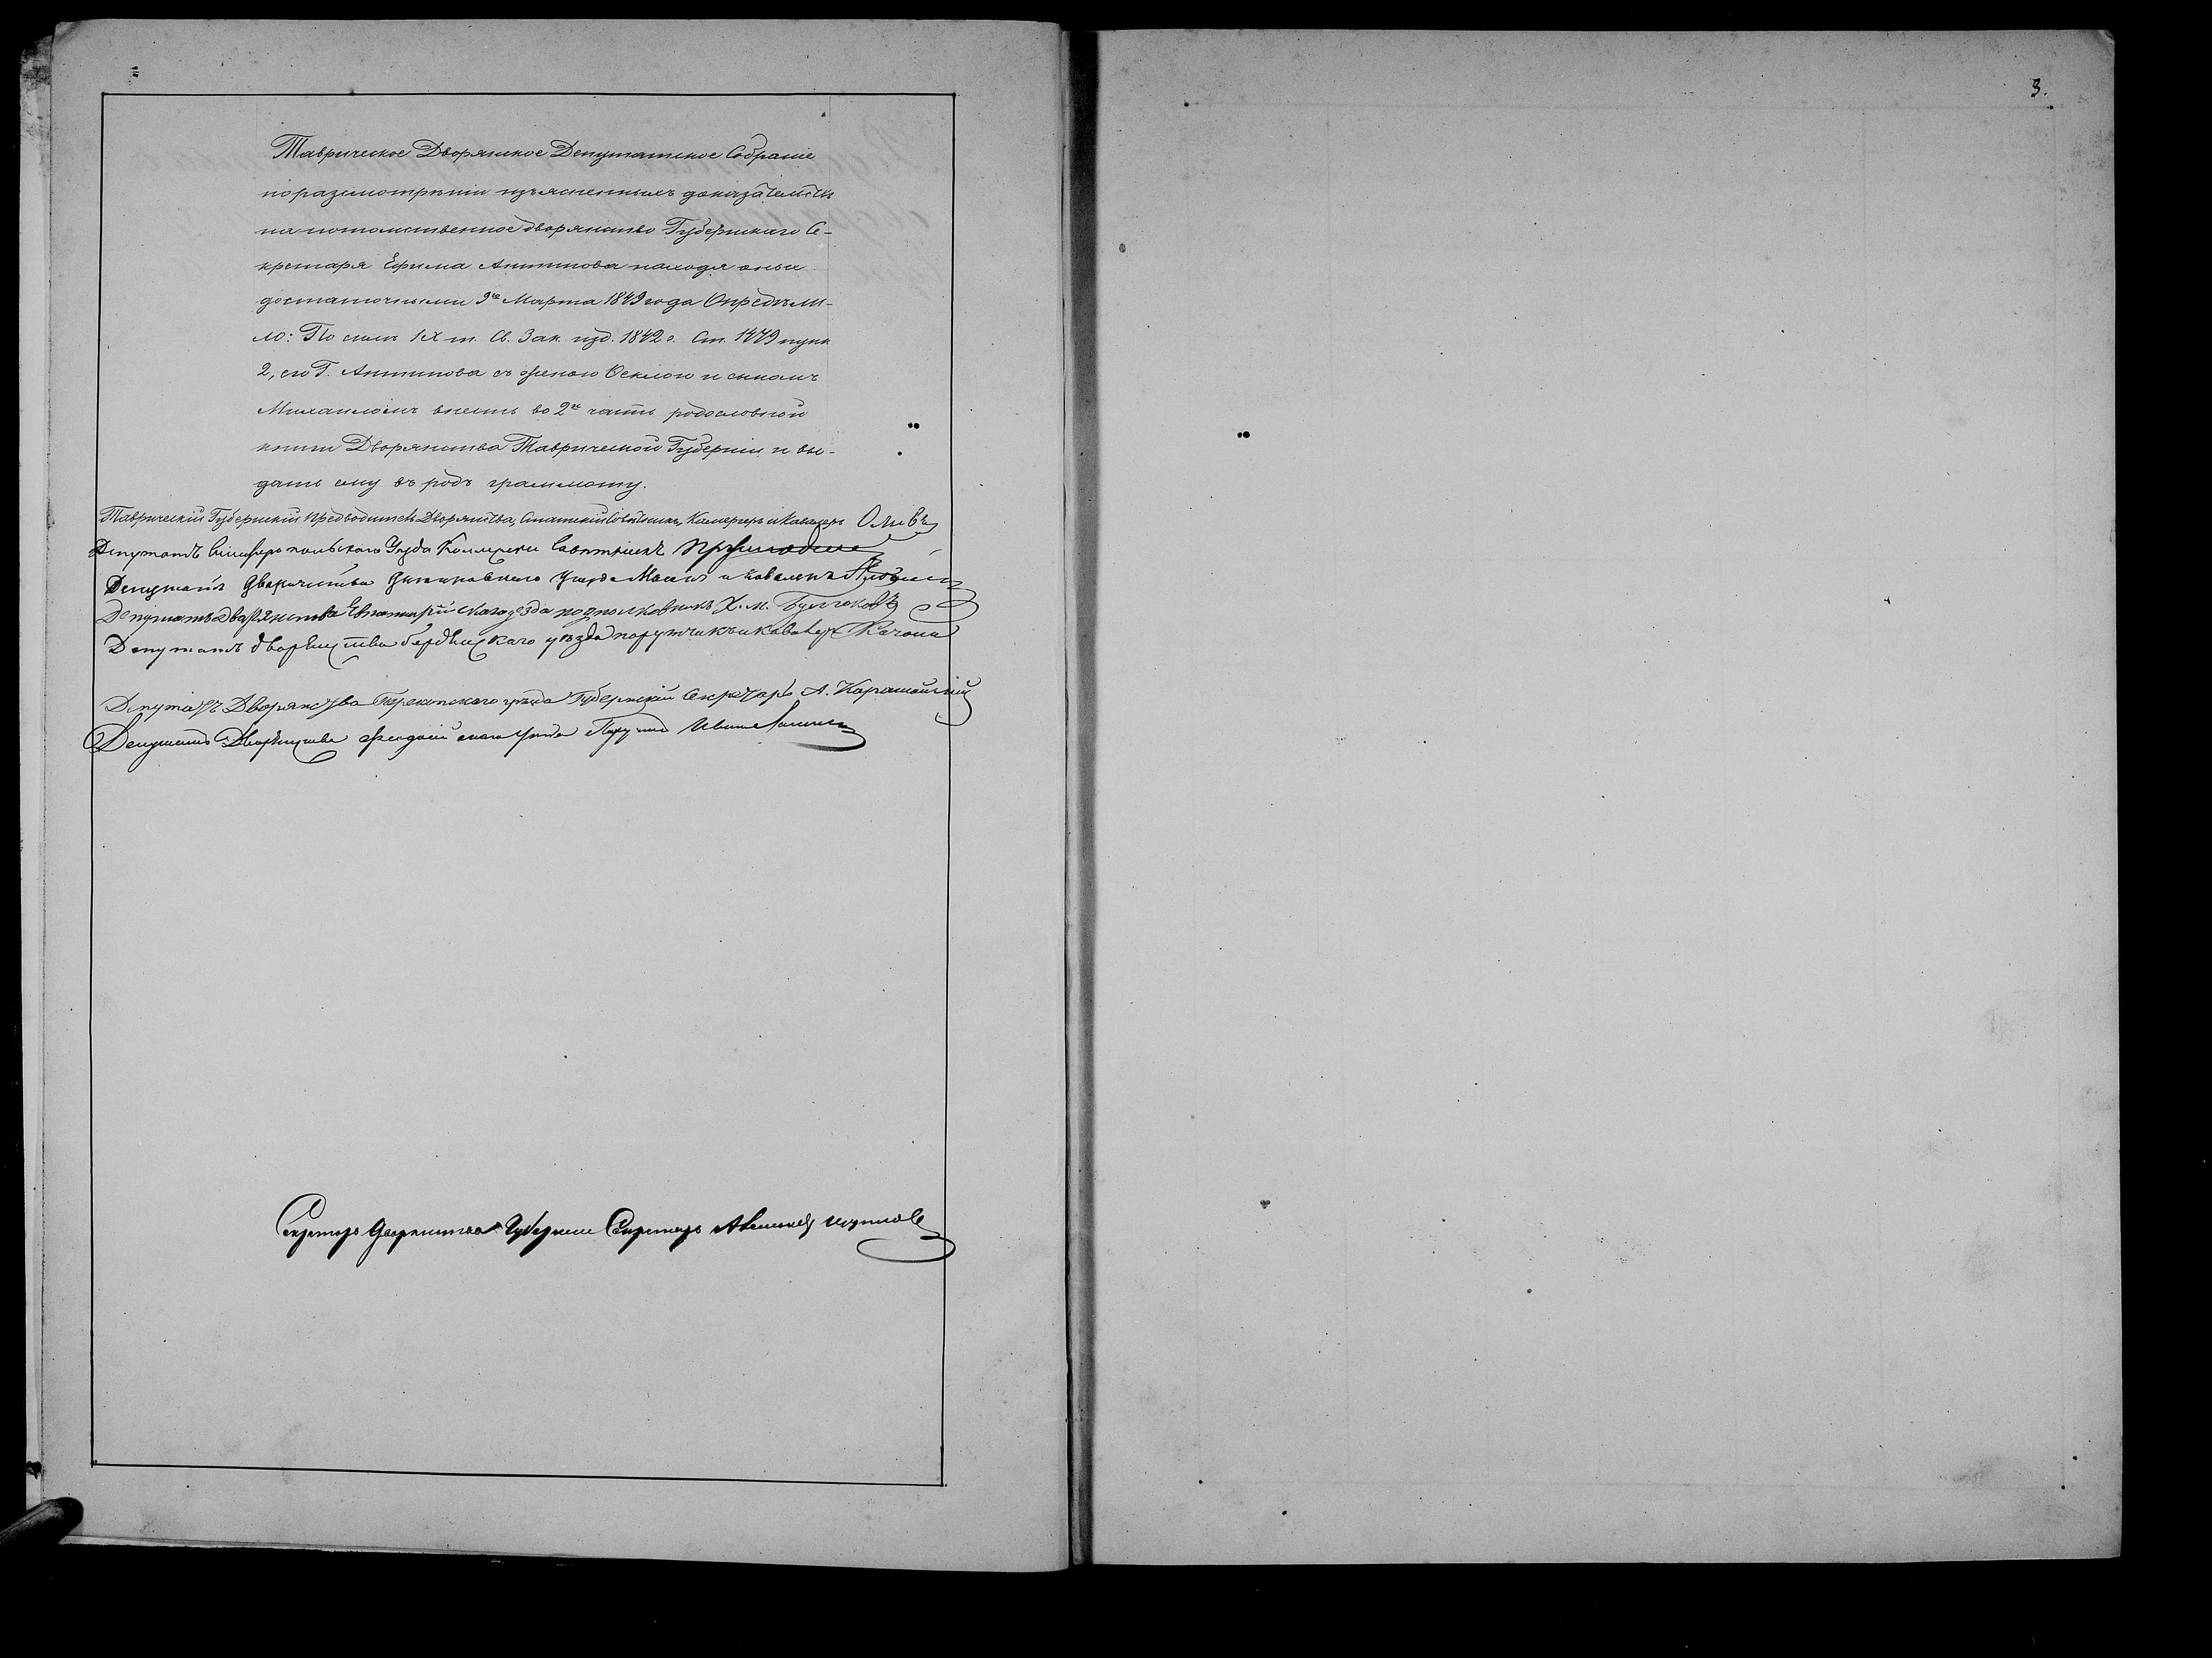 3.
Таврическое Дворянское Депутатское Собраніе
по разсмотрѣніи изъясненныхъ доказательствъ
на потомственное дворянство Губернскаго Се-
кретаря Ефима Антипова находя оныя
достаточными 9го Марта 1849 года Опредѣли-
ло: По силѣ IX т. Св. Зак. изд. 1842 г. Ст. 1479 пунк
2, его Г. Антипова съ женою Феклою и сыномъ
Михаиломъ внесть во 2ю часть родословной
книги Дворянства Таврической Губерніи и вы-
дать ему въ родъ граммоту.
Таврическій Губернскій Предводитель Дворянства, Статскій Совѣтникъ, Камергеръ и Кавалеръ Оливъ
Депутатъ Симферопольского Уезда Коллежскій Совѣтникъ
Депутатъ Дворянства Уезда и Кавалеръ
Депутатъ Дворянства Евпаторійскаго уезда подполковникъ Х. М. Булгаковъ
Депутатъ дворянства бердянскаго уезда поручикъ и кавалеръ Качони
Депутатъ Дворянства Перекопскаго уѣзда Губернскій Секретарь А.
Депутатъ Дворянства Феодосійскаго Уезда Иванъ
Секретарь дворянства Губернскій Секретарь